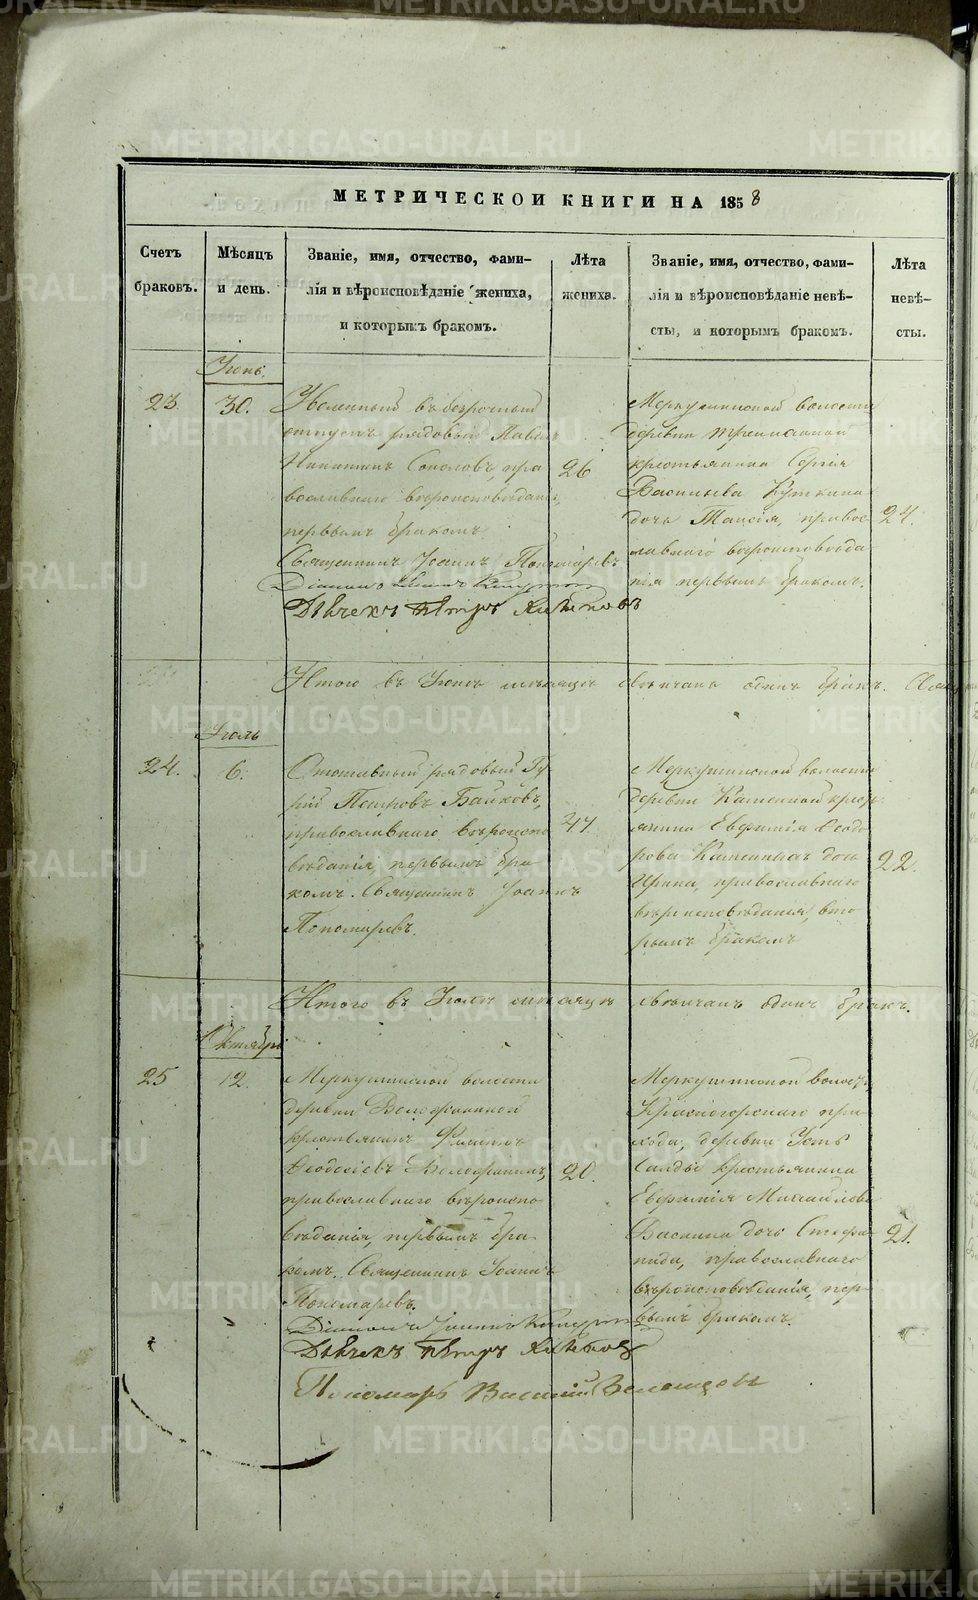 МЕТРИЧЕСКОЙ КНИГИ НА 1858
Счетъ браковъ.
Мѣсяцъ и день.
Званіе, имя, отчество, фами-
лія и вѣроисповѣданіе жениха,
и которымъ бракомъ.
Лѣта
жениха.
Званіе, имя, отчество, фами-
лія и вѣроисповѣданіе невѣ-
сты, и которымъ бракомъ.
Лѣта
невѣ-
сты.
Іюнь.
23.
30.
Уволенный въ безрочный
отпускъ рядовый Павелъ
Никитинъ Соколовъ, пра
вославнаго вѣроисповѣданія,
первымъ бракомъ
Священникъ Іоаннъ Пономаревъ
Діаконъ Іоаннъ
Дьячекъ Петръ
26
Меркушинской волости
деревни
крестьянина Сергія
Васильева
дочь Таисія, правос
лавнаго вѣроисповѣда
нія первымъ бракомъ.
24.
Итого въ Іюнѣ мѣсяцѣ вѣнчанъ одинъ бракъ.
Іюль
24.
6.
Отставный рядовый Гу
рій Петровъ Байковъ,
православнаго вѣроиспо
вѣданія, первымъ бра
комъ. Священникъ Іоаннъ
Пономаревъ.
Меркушинской волости
деревни Каменной крест
янина Евфимія Ѳеодо
рова дочь
Ирина, православнаго
вѣроисповѣданія, вто
рымъ бракомъ
22.
Итого въ Іюлѣ мѣсяцѣ вѣнчанъ одинъ бракъ.
Октябрь
25
12.
Меркушинской волости
деревни
крестьянинъ Филиппъ
Ѳеодосіевъ
православнаго вѣроиспо
вѣданія, первымъ бра
комъ. Священникъ Іоаннъ
Пономаревъ.
Діаконъ Іоаннъ
Дьячекъ Петръ
Пономарь Василій
20.
Меркушинской волости
Красногорскаго при
хода, деревни Усть
Салды крестьянина
Евфимія Михайлова
дочь Стефа
нида, православнаго
вѣроисповѣданія, пер
вымъ бракомъ.
21.
METRIKI.GASO-URAL.RU